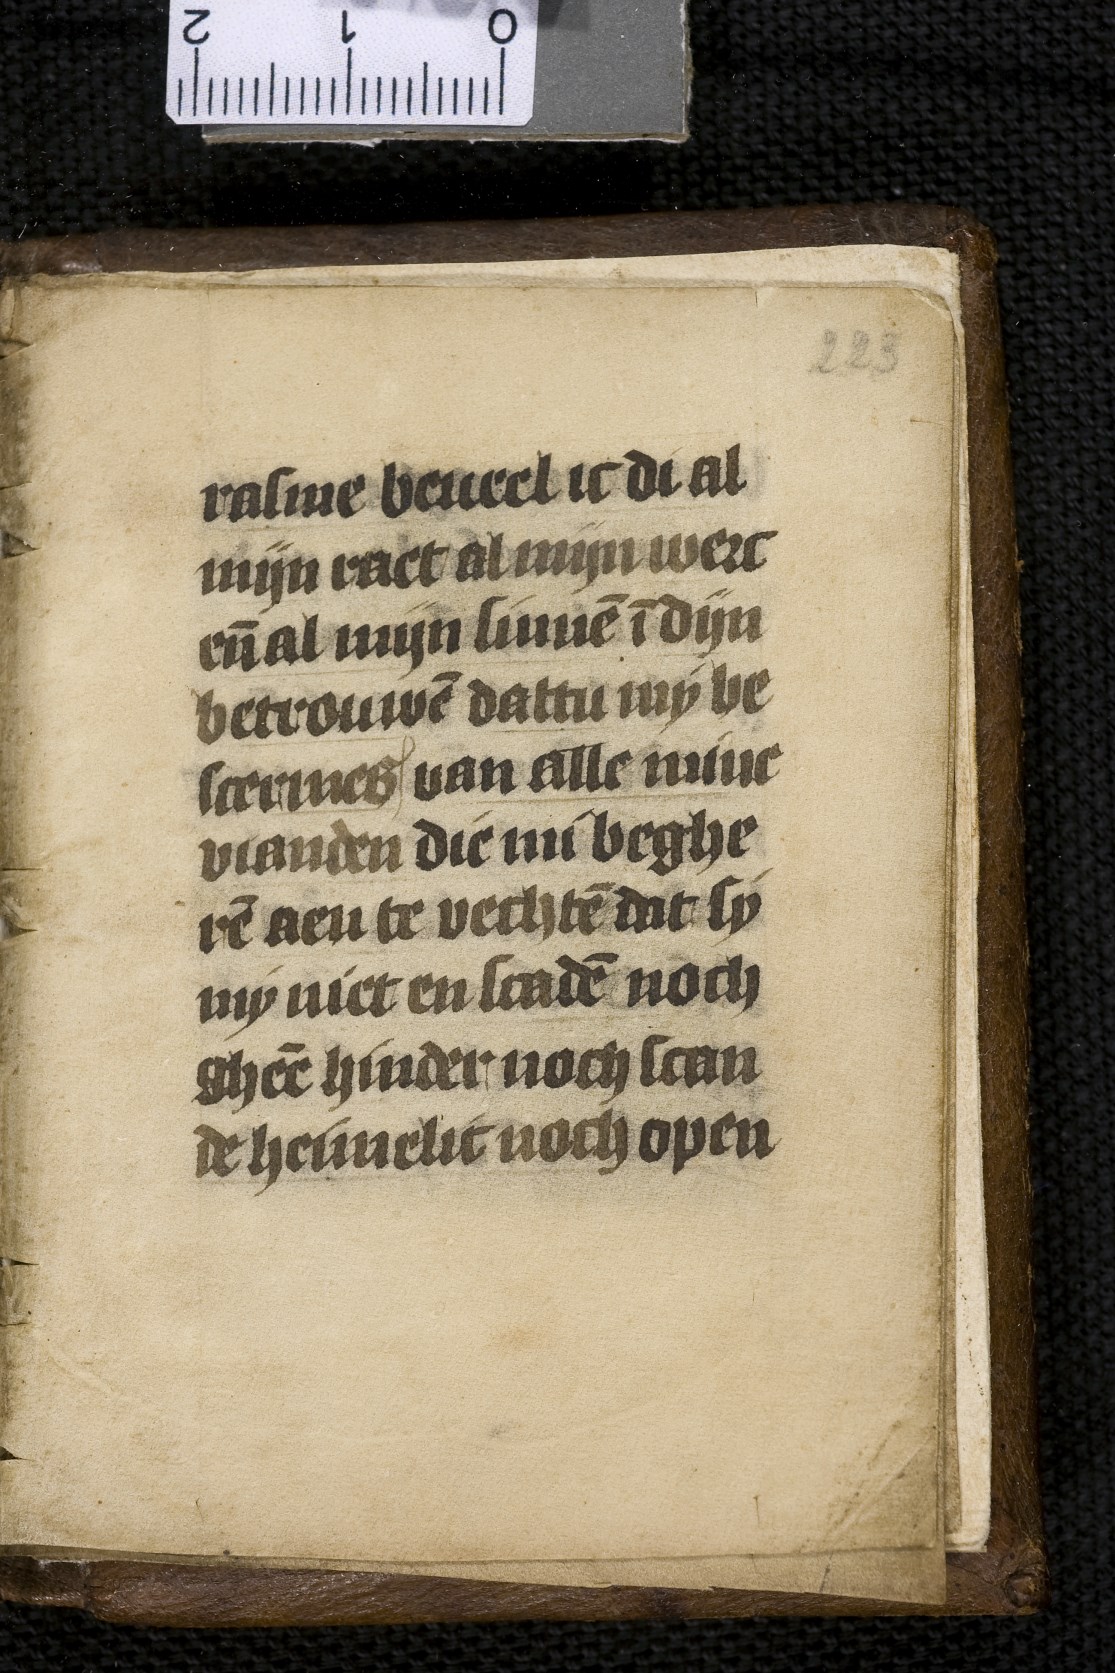 2 1 0
223
rasme beueel ic di al
mijn raet al mijn werc
en̄ al mijn sinnē ī dijn
betrouwē dattu mij be
scermes van alle mine
vianden die mi beghe
rē aen te vechtē dat sij
mij niet en scadē noch
gheē hinder noch scan
de heimelic noch open